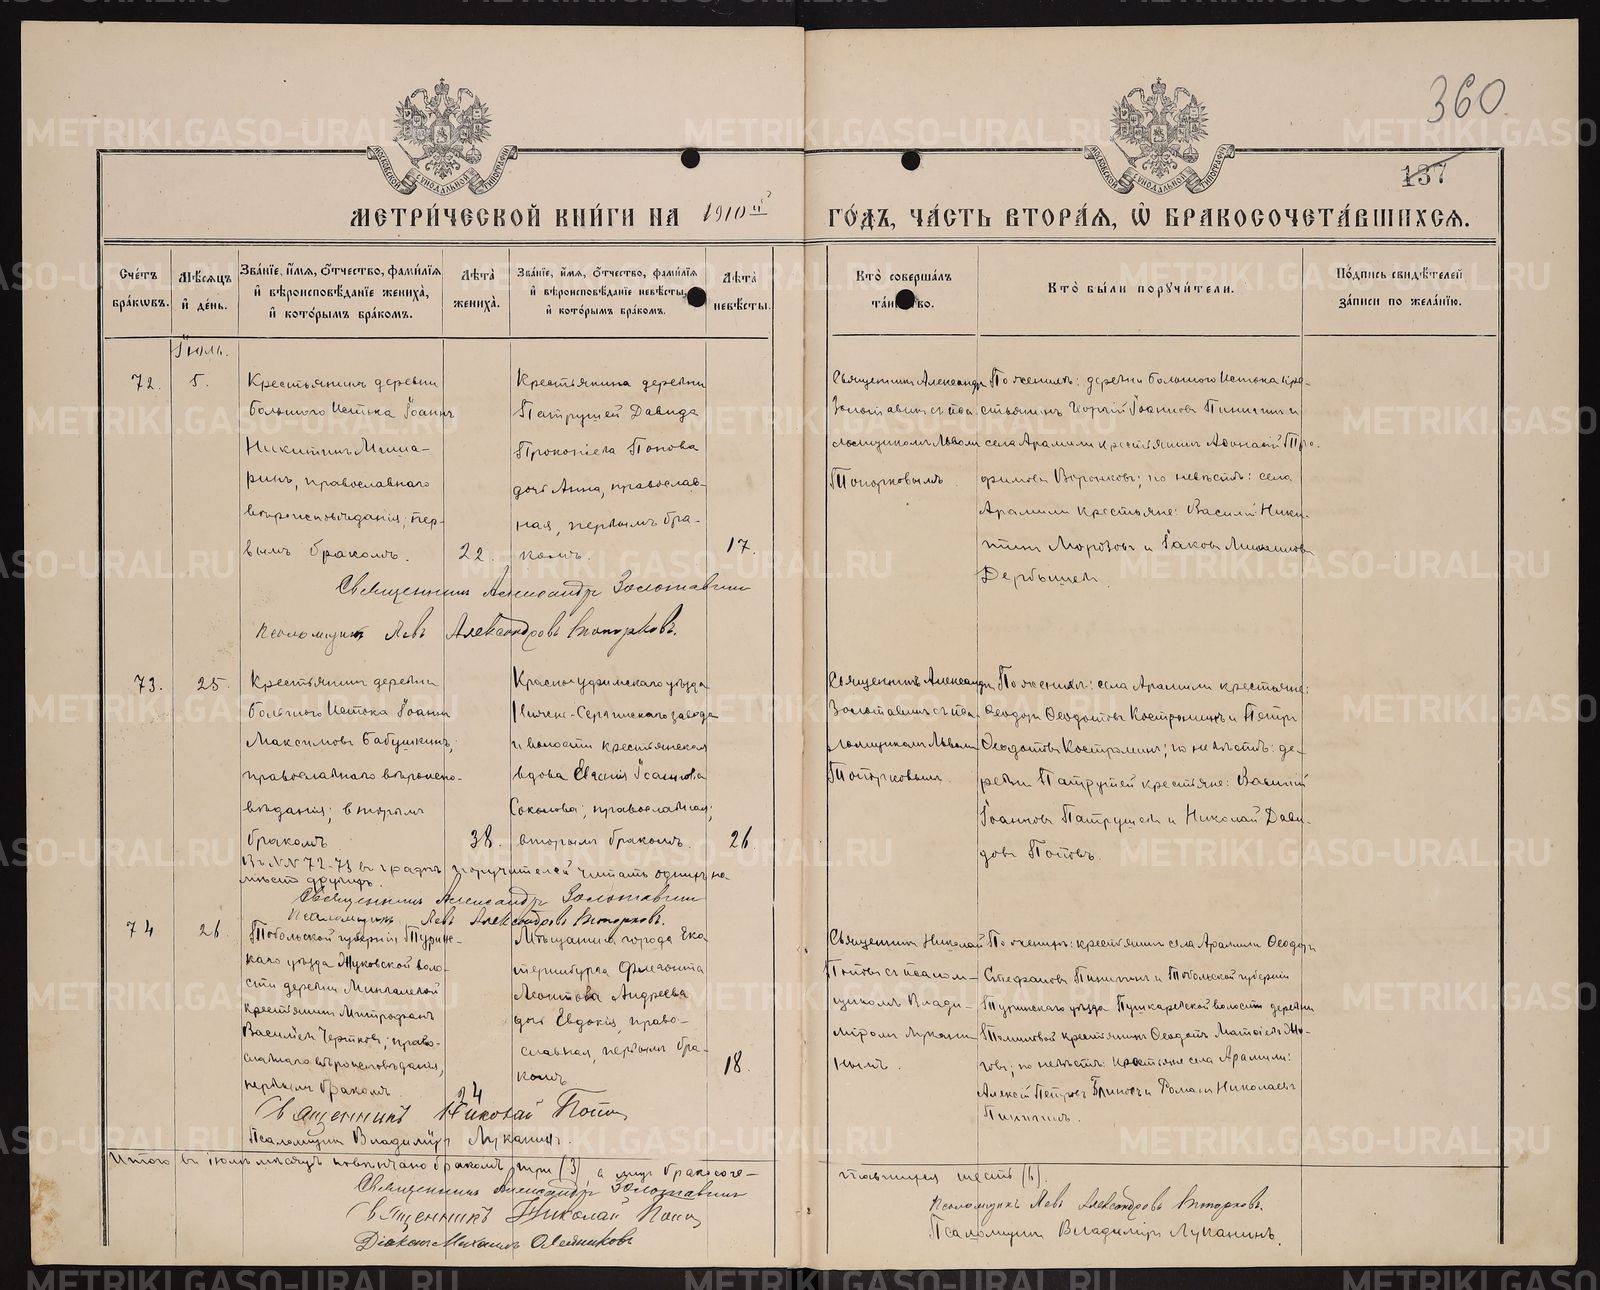 360
137
МОСКОВСКОЙ СѴНОДАЛЬНОЙ ТИПОГРАФІИ
МОСКОВСКОЙ СѴНОДАЛЬНОЙ ТИПОГРАФІИ
МЕТРИ́ЧЕСКОЙ КНИ́ГИ НА 1910й ГО́ДЪ, ЧА́СТЬ ВТОРА́Я, Ѽ БРАКОСОЧЕТА́ВШИХСЯ.
Сче́тъ бра́кѡвъ.
Мѣ́сяцъ и҆ де́нь.
Зва́нїе, и҆́мя, ѻ҆́тчество, фами́лїя и҆ вѣроисповѣ́данїе жениха̀, и҆ кото́рымъ бра́комъ.
Лѣ́та жениха̀.
Зва́нїе, и҆́мя, ѻ҆́тчество, фами́лїя и҆ вѣроисповѣ́данїе невѣ́сты, и҆ кото́рымъ бра́комъ.
Лѣ́та невѣ́сты.
Кто̀ соверша́лъ та́инство.
Кто̀ бы́ли порꙋчи́тели.
По́дпись свидѣ́телей за́писи по жела́нїю.
Іюль.
72.
5.
Крестьянинъ деревни
Большого Истока Іоаннъ
Никитинъ
православнаго
вѣроисповѣданія, пер-
вымъ бракомъ.
22.
Крестьянина деревни
Патрушей Давида
Прокопіева Попова
дочь Анна, православ-
ная, первымъ бра-
комъ.
17.
Священникъ Александръ
Золотавинъ съ пса-
ломщикомъ Львомъ
Топорковымъ.
По женихѣ: деревни Большого Истока кре-
стьянинъ Іоанновъ Пиничинъ и
села Арамили крестьянинъ Аѳанасій Тро-
фимовъ Воронковъ; по невѣстѣ: села
Арамили крестьяне: Василій Ники-
тинъ Морозовъ и Іаковъ Михаиловъ
Дербышевъ.
Священникъ Александръ Золотавинъ
Псаломщикъ Левъ Александровъ Топорковъ.
73.
25.
Крестьянинъ деревни
Большого Истока Іоаннъ
Максимовъ Бабушкинъ,
православнаго вѣроиспо-
вѣданія; вторымъ
бракомъ
38.
Красноуфимскаго уѣзда
Нижне-Сергинскаго завода
и волости крестьянская
вдова Евгенія Іоаннова
Соколова; православная;
вторымъ бракомъ.
26.
Священникъ Александръ
Золотавинъ съ пса-
ломщикомъ Львомъ
Топорковымъ.
По женихѣ: села Арамили крестьяне:
Ѳеодоръ Ѳеодотовъ Костроминъ и Петръ
Ѳеодотовъ Костроминъ; по невѣстѣ: де-
ревни Патрушей крестьяне: Василій
Іоанновъ Патрушевъ и Николай Дави-
довъ Поповъ.
Въ №№ 72-73 въ графѣ поручителей читать однихъ на
мѣсто другихъ.
Священникъ Александръ Золотавинъ
Псаломщикъ Левъ Александровъ Топорковъ.
74
26.
Тобольской губерніи Турин-
скаго уѣзда Жуковской воло-
сти деревни
крестьянинъ Митрофанъ
Васильевъ Чертковъ; право-
славнаго вѣроисповѣданія,
первымъ бракомъ.
24
Мѣщанина города Ека-
теринбурга Флегонта
Леонтова Андреева
дочь Евдокія, право-
славная, первымъ бра-
комъ
18.
Священникъ Николай
Поповъ съ псалом-
щикомъ Влади-
міромъ Лукани-
нымъ.
По женихѣ: крестьянинъ села Арамили Ѳеодоръ
Стефановъ Пиничинъ и Тобольской губерніи
Туринскаго уѣзда Пушкаревской волости деревни
Томиловой крестьянинъ Ѳеодотъ Матѳіевъ
по невѣстѣ: крестьяне села Арамили:
Алексій Петровъ Блиновъ и Романъ Николаевъ
Пиничинъ.
Священникъ Николай Поповъ
Псаломщикъ Владиміръ Луканинъ.
Итого въ іюлѣ мѣсяцѣ повѣнчано браковъ три (3), а лицъ бракосоче-
тавшихся шесть (6).
Священникъ Александръ Золотавинъ
Священникъ Николай Поповъ
Діаконъ Михаилъ Олейниковъ
Псаломщикъ Левъ Александровъ Топорковъ.
Псаломщикъ Владиміръ Луканинъ.
METRIKI.GASO-URAL.RU